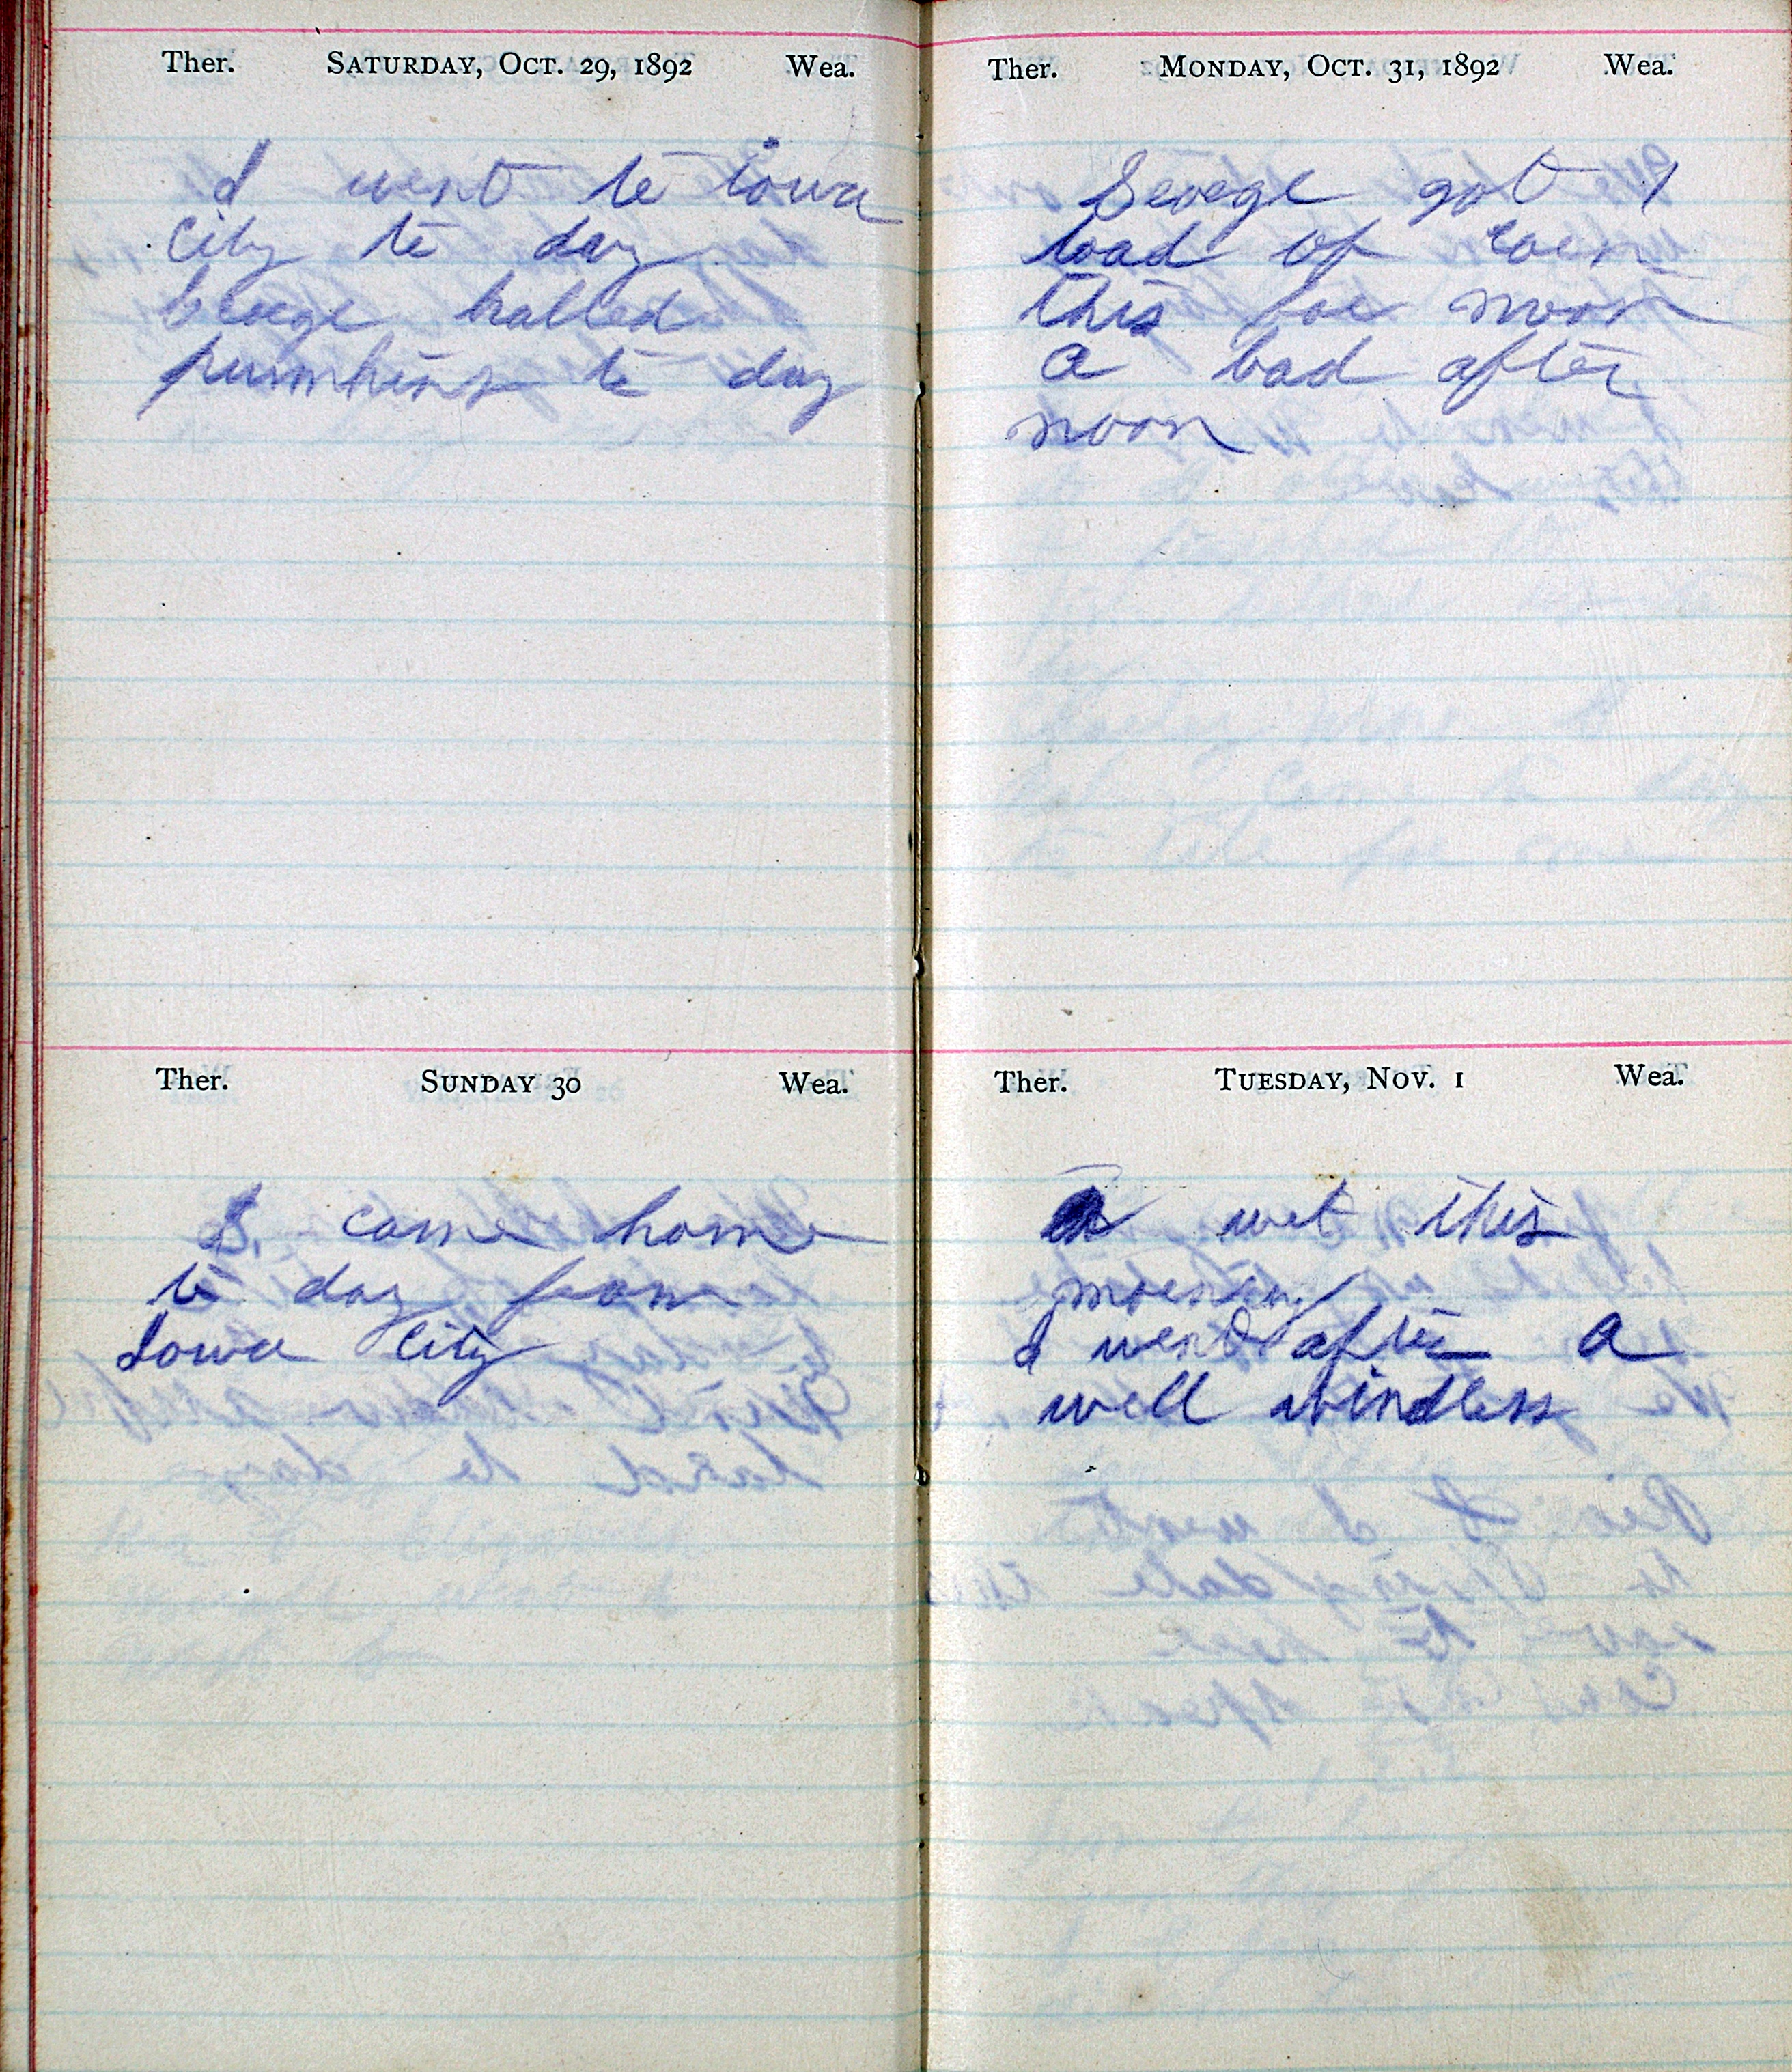 Ther. SATURDAY, OCT. 29, 1892 Wea.
I went to iowa
City to day
George halled
pumkins to day
Ther. SUNDAY 30 Wea.
I come home
to day from
Iowa City
Ther. MONDAY, OCT. 31, 1892 Wea.
George got 1
load of corn
this for noon
a bad after
noon
Ther. TUESDAY, NOV. 1 Wea.
a wet this
morning
I went after a
well windless